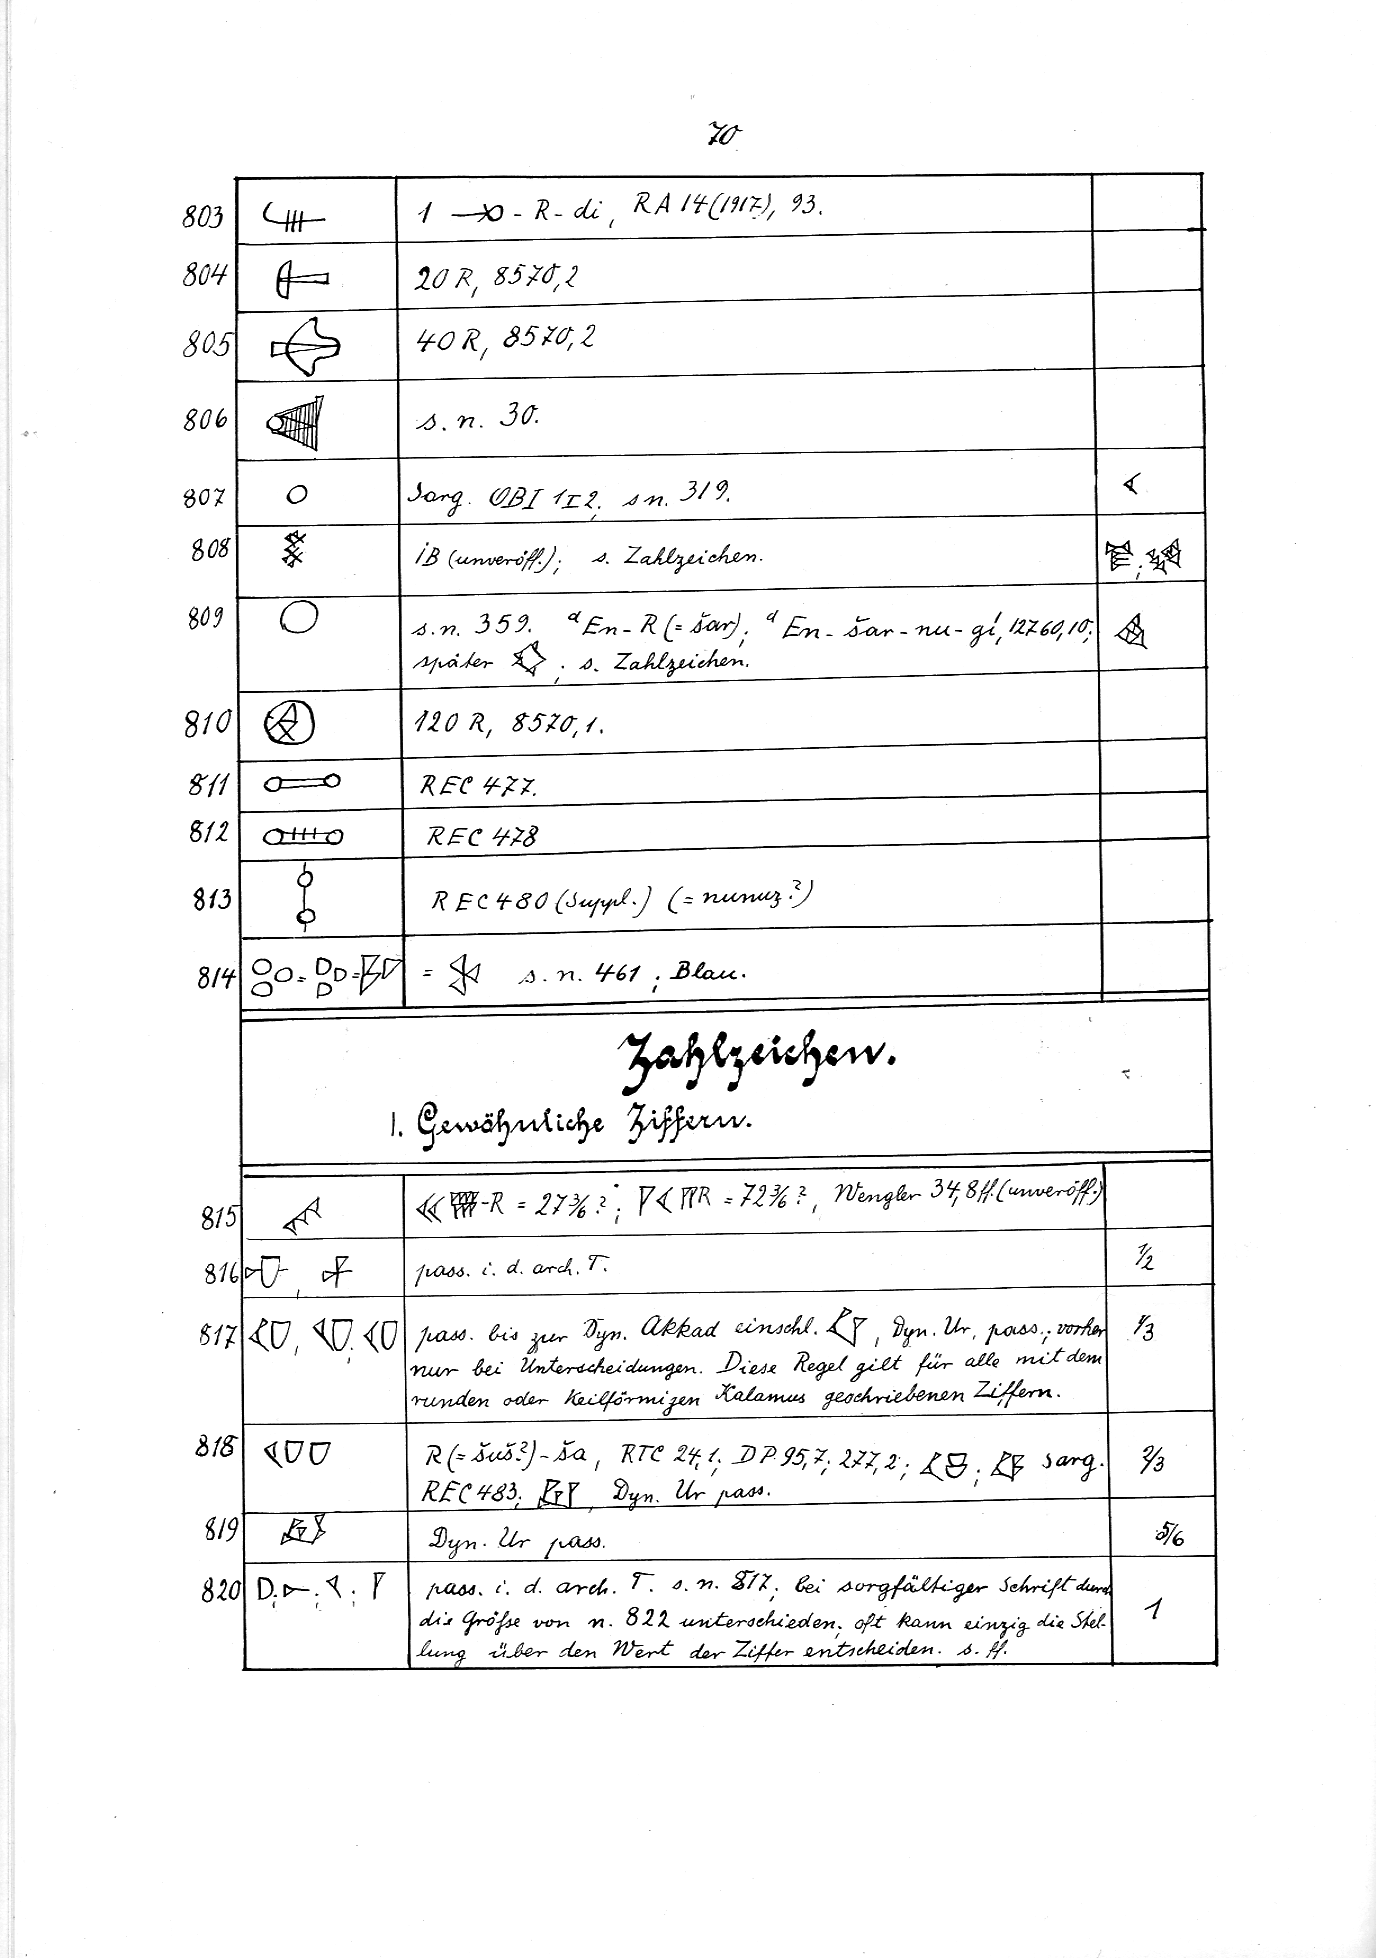 70
803 1 - R - di, RA 14 (1917), 93.
804 20 R, 8570,2
805 40 R, 8570,2
806 s. n. 30.
807 Sarg. OBI 1 I 2; s n. 319.
808 IB (unveröff.); s. Zahlzeichen.
809 s. n. 359. ᵈEn-R (= šar); ᵈEn-šar-nu-gí, 12760,10;
später ; s. Zahlzeichen.
810 120 R, 8570,1.
811 REC 477.
812 REC 478
813 REC 480 (Suppl.) (= nunuz?)
814 = = = s. n. 461; Blau.
Zahlzeichen.
1. Gewöhnliche Ziffern.
815 -R = 27 3/6?; R = 72 3/6?, Wengler 34,8ff. (unveröff.)
816 pass. i. d. arch. T. 1/2
817 pass. bis zur Dyn. Akkad einschl. , Dyn. Ur, pass.; vorher 1/3
nur bei Unterscheidungen. Diese Regel gilt für alle mit dem
runden oder Keilförmigen Kalamus geschriebenen Ziffern.
818 R (= šuš?)-ša, RTC 24,1; DP. 95,7; 277,2; ; Sarg. 2/3
REC 483; , Dyn. Ur pass.
819 Dyn. Ur pass. 5/6
820 pass. i. d. arch. T. s. n. 817; bei sorgfältiger Schrift durch
die Größe von n. 822 unterschieden; oft kann einzig die Stel- 1
lung über den Wert der Ziffer entscheiden. s. ff.